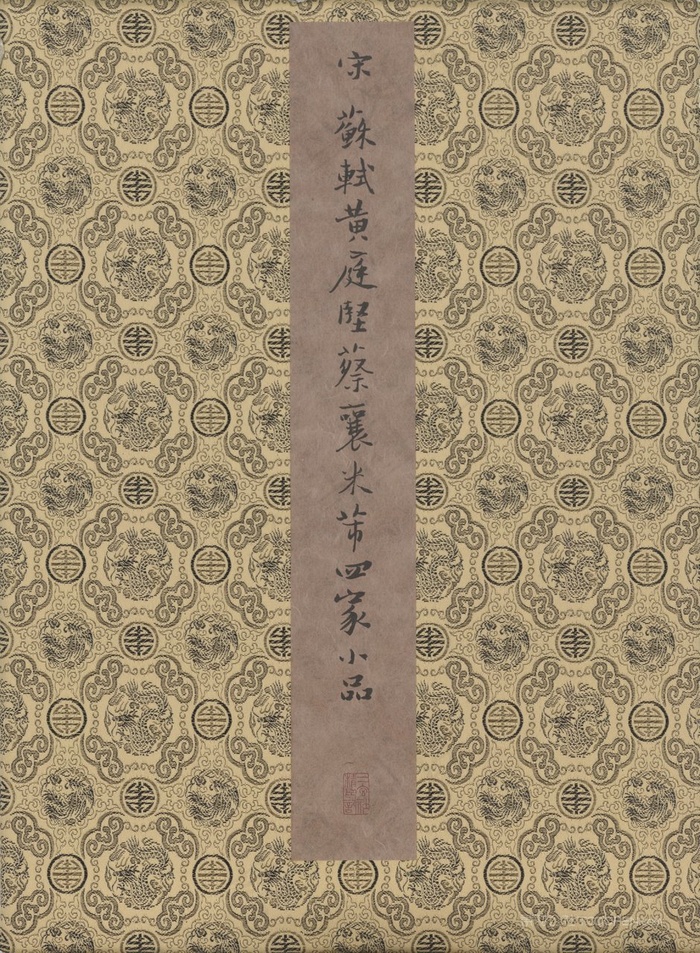 宋 蘇軾黃庭堅蔡襄米芾四家小品